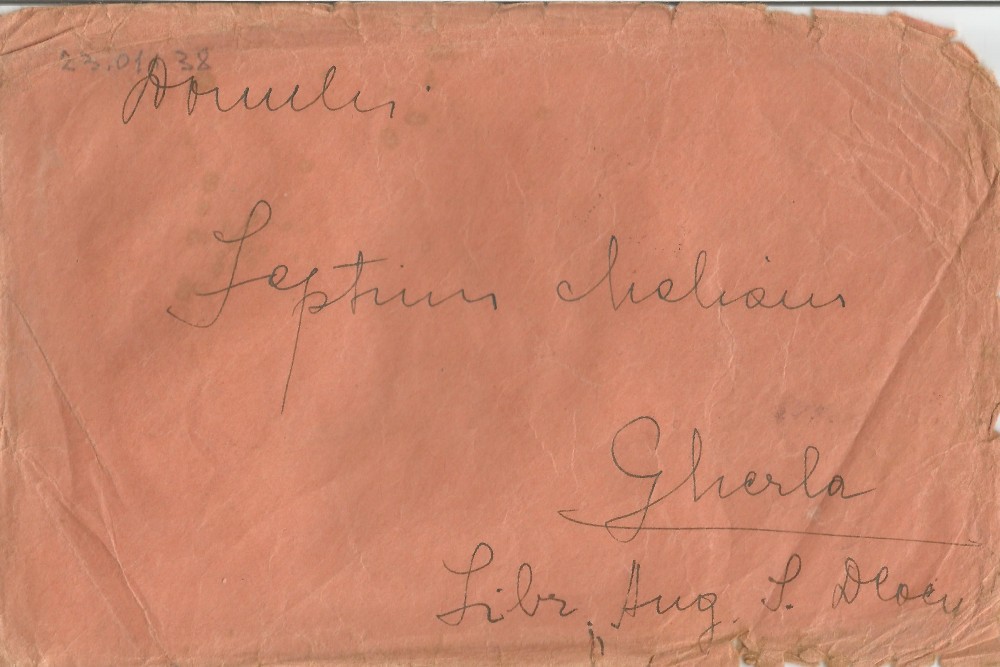 23.01.38
Domnului
Septimiu
Gherla
Libr. Aug. S.